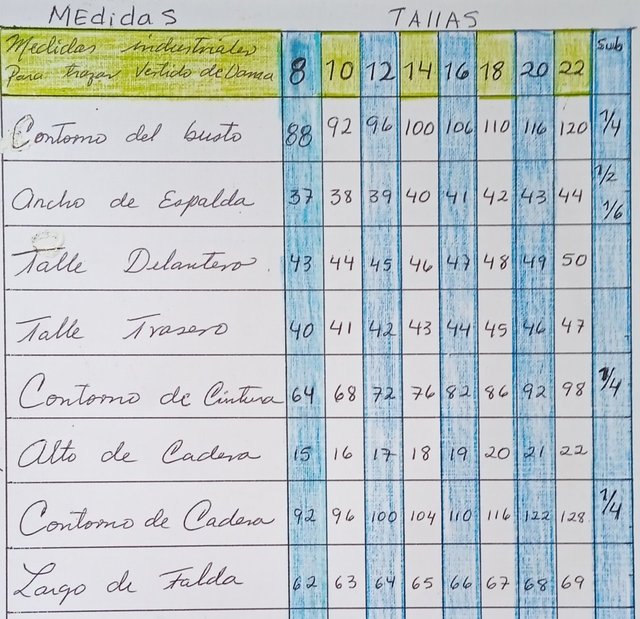 MEdidas TAllAS
Medidas industriales
Para trazar Vestido de Dama 8 10 12 14 16 18 20 22 Sub
Contorno del busto 88 92 96 100 106 110 116 120 1/4
Ancho de Espalda 37 38 39 40 41 42 43 44 1/2 1/6
Talle Delantero. 43 44 45 46 47 48 49 50
Talle Trasero 40 41 42 43 44 45 46 47
Contorno de Cintura 64 68 72 76 82 86 92 98 1/4
Alto de Cadera 15 16 17 18 19 20 21 22
Contorno de Cadera 92 96 100 104 110 116 122 128 1/4
Largo de Falda 62 63 64 65 66 67 68 69